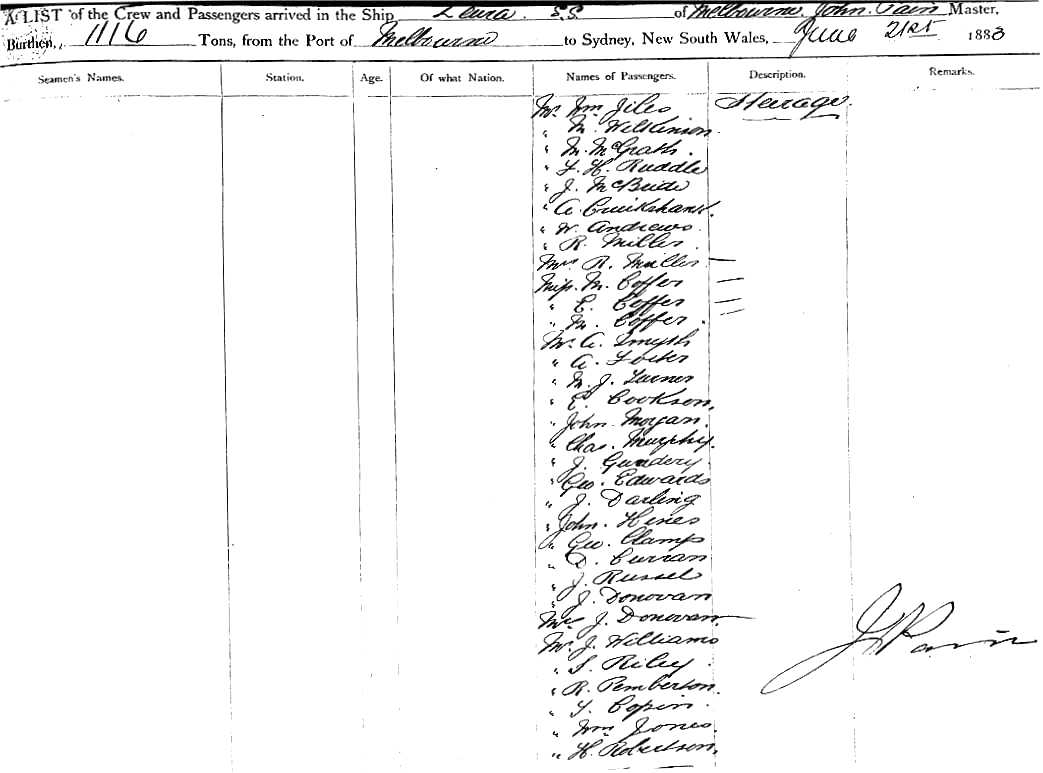 A LIST of the Crew and Passengers arrived in the Ship Leura. S.S. of Melbourne John. Pain Master,
Burthen, 1116 Tons, from the Port of Melbourne to Sydney, New South Wales, June 21st 1883
Seamen's Names. Station. Age. Of what Nation. Names of Passengers. Description. Remarks.
Mr. Wm Jiles Steerage.
" M. Wilkinson
" M. McGrath.
" F. H. Ruddle
" J. McBride
" A Cruikshank.
" W. Andrews.
" R. Miller.
Mrs R. Miller —
Miss. M. Coffer —
" E. Coffer —
" M. Coffer. —
Mr. A. Smyth
" A.
" M. J.
" E. Cookson.
" John Morgan.
" Chas. Murphy.
" J. Gundery.
" Geo. Edwards
" J. Darling
" John. Hines
" Geo. Clamps
" D. Curran
" J. Russel
" J. Donovan
Mrs J. Donovan. —
Mr. J. Williams
" S. Riley.
" R. Pemberton.
" Copin.
" Wm Jones.
" H. Robertson.
J Pain